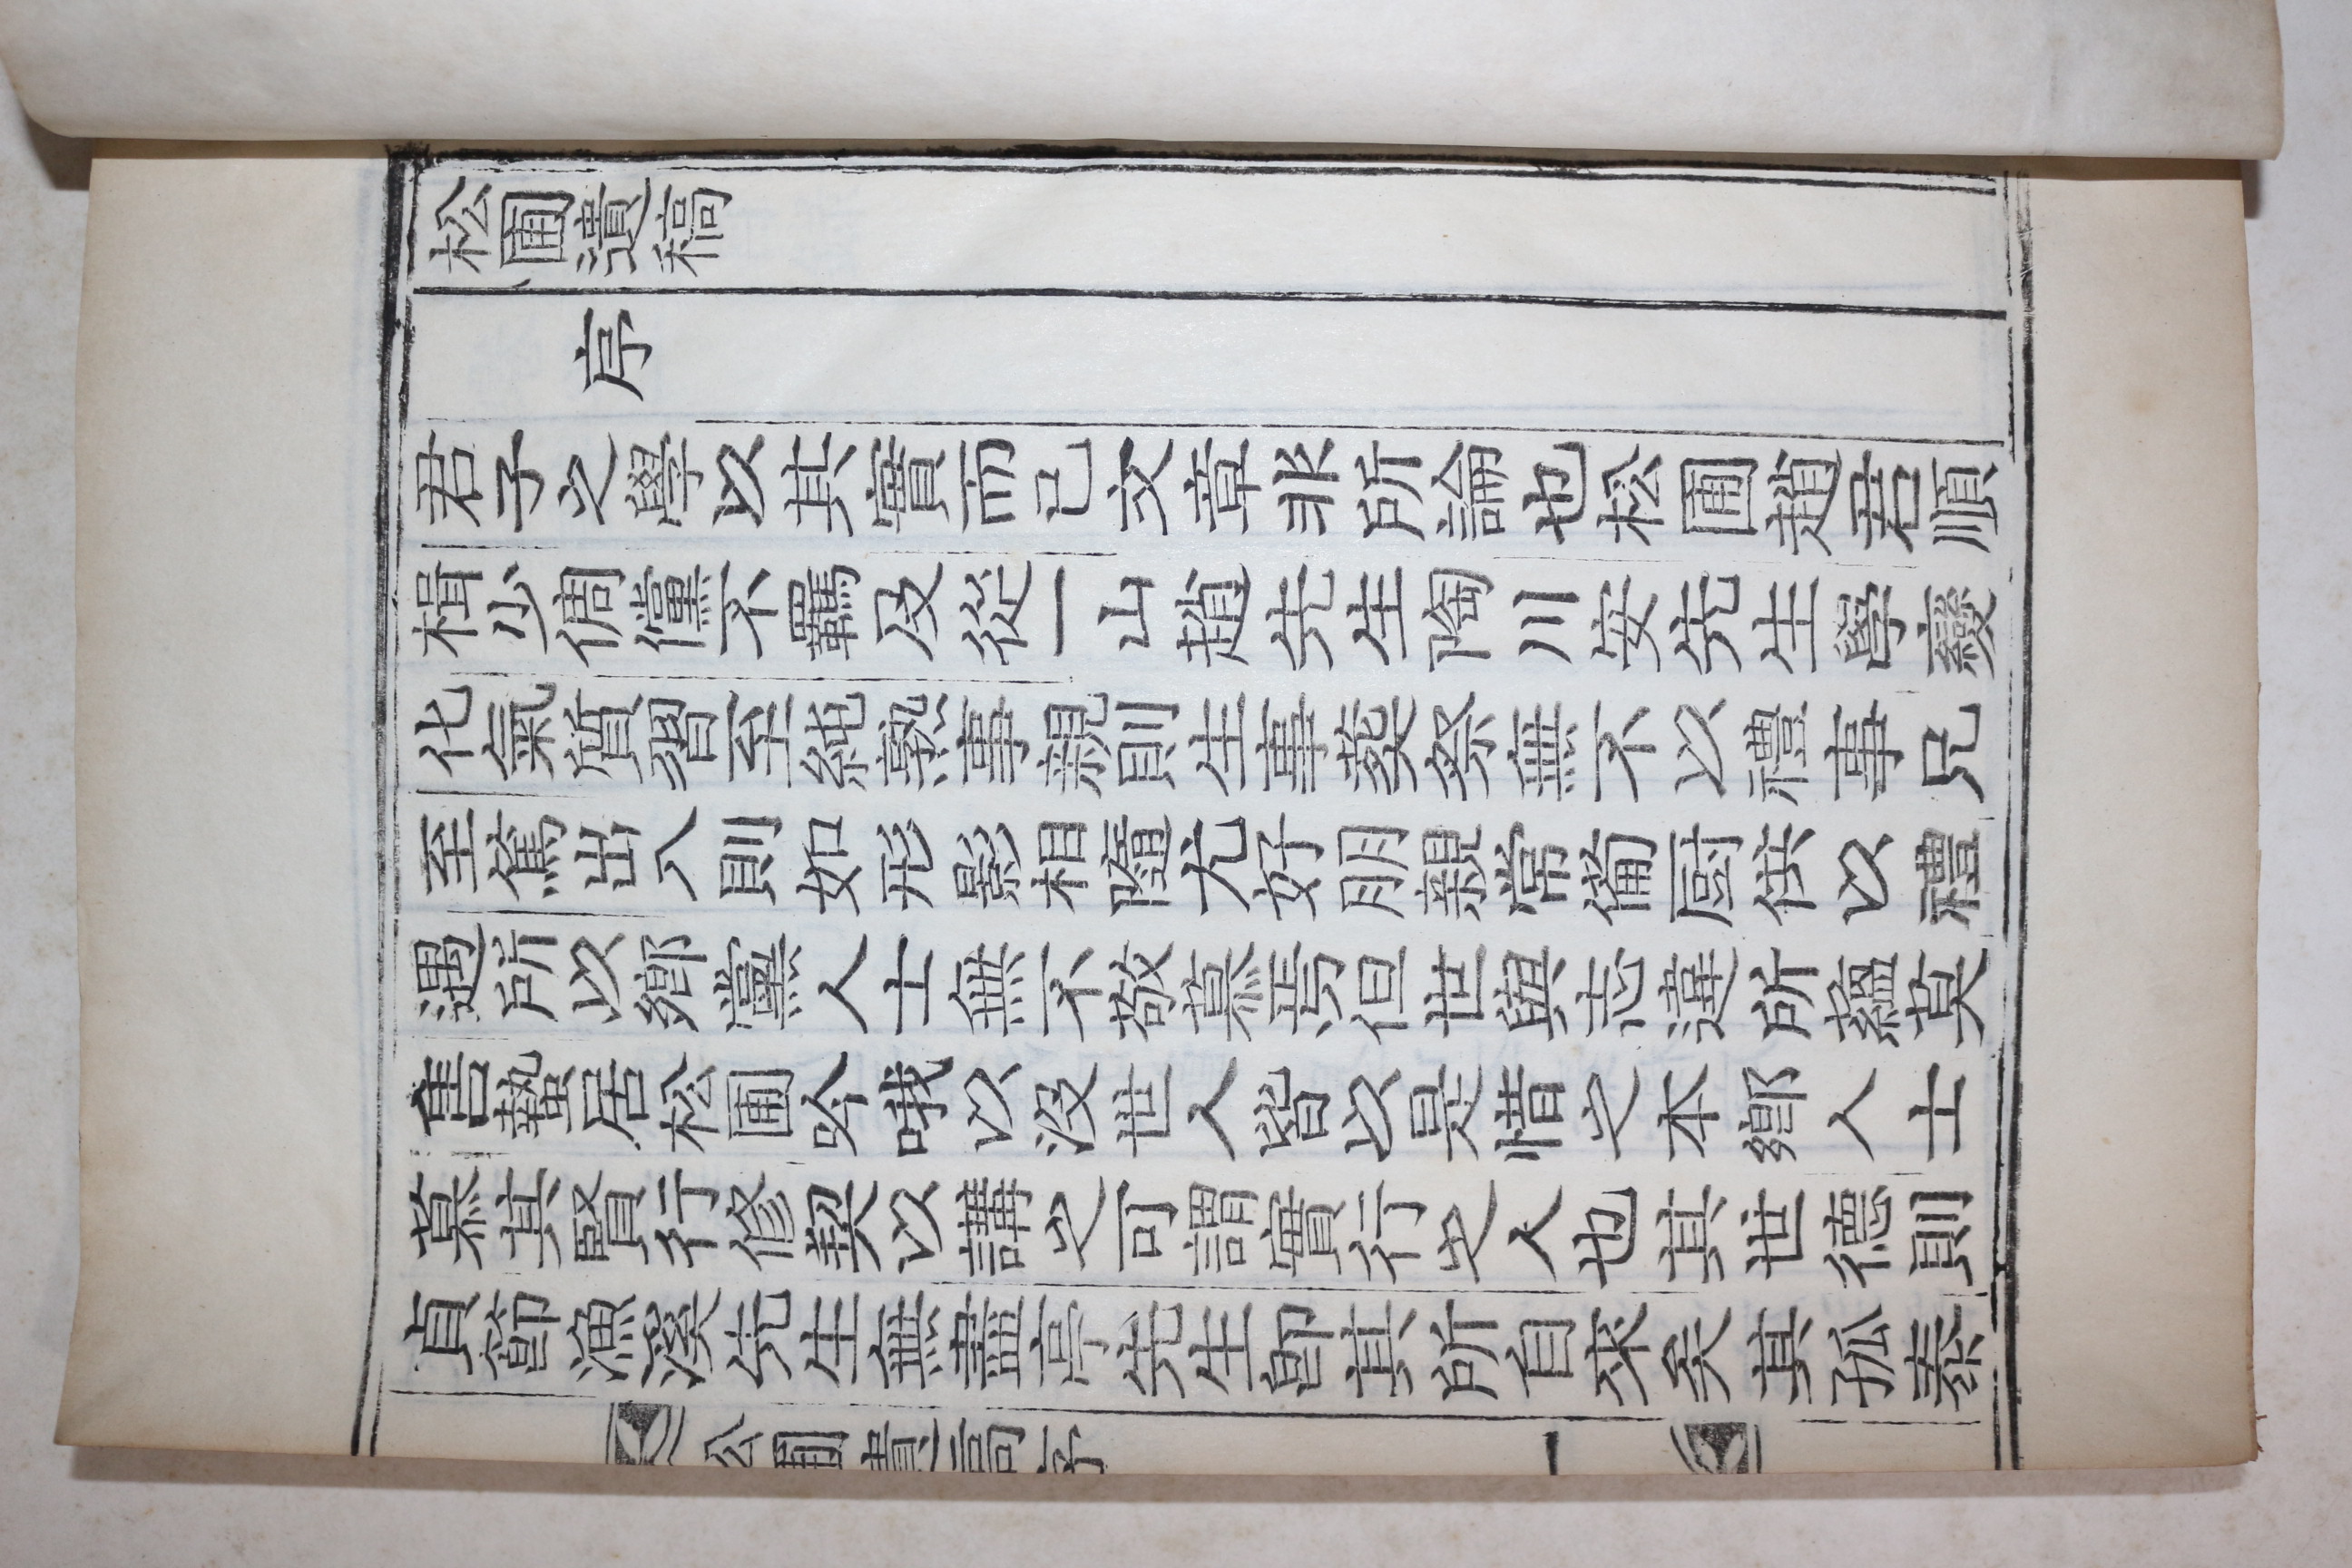 松圃遺稿
序
君子之學以其實而已文章非所論也松圃趙君順
楫少倜儻不羈及從一山趙先生陶川安先生學變
化氣質習至純熟事親則生事葬祭無不以禮事兄
至篤出入則如形影相隨尤好朋親常備厨供以禮
遇所以鄕黨人士無不敬慕焉但世與志違所蘊莫
售蟄居松圃吟哦以沒世人皆以是惜之本鄕人士
慕其賢行修契以講之可謂實行之人也其世德則
貞節漁溪先生無盡亭先生卽其所自來矣其孤泰
松圃遺稿序 一